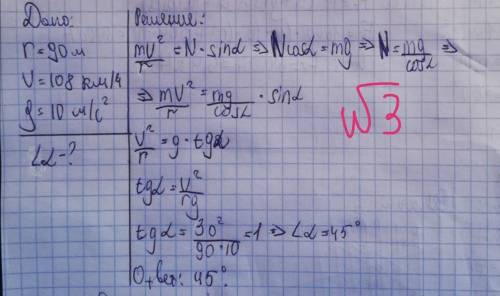 Дано:
r = 90 м
V = 108 км/ч
g = 10 м/с²
∠α - ?
Решение:
mV²/r = N · sinα ⇒ Ncosα = mg ⇒ N = mg/cosα ⇒
⇒ mV²/r = mg/cosα · sinα
V²/r = g · tgα
tgα = V²/rg
tgα = 30²/90·10 = 1 ⇒ ∠α = 45°
Ответ: 45°.
√3